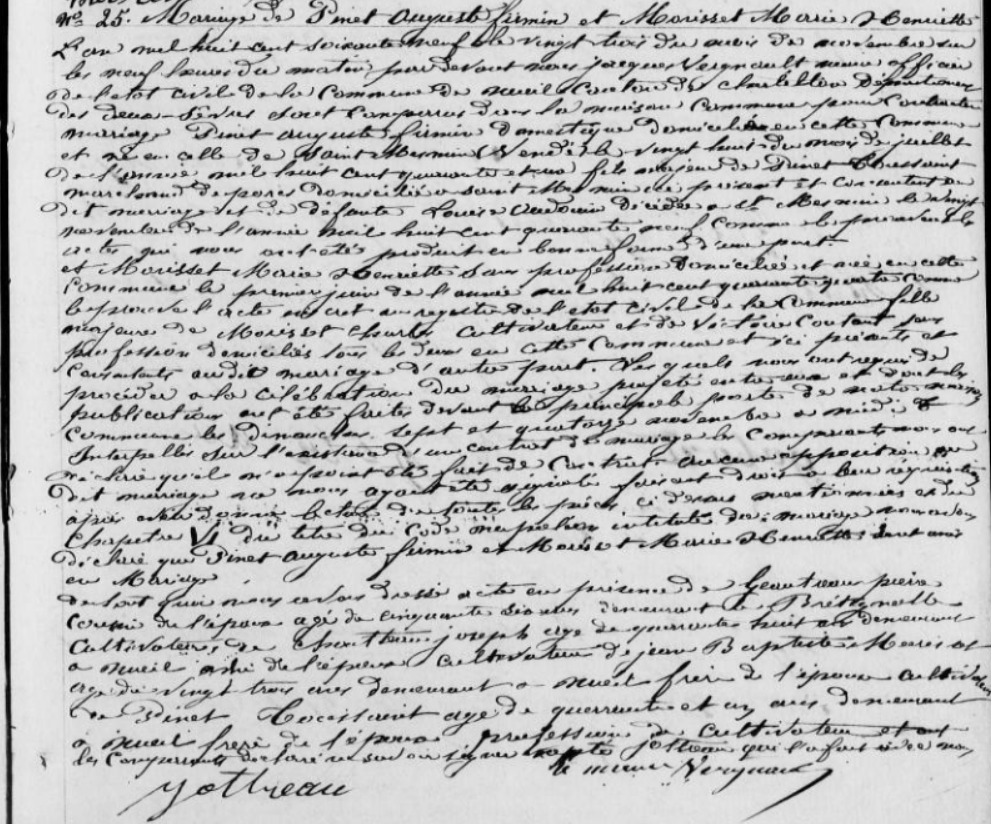 No 25. Mariage de Pinet Auguste firmin et Morisset Marie Henriette
L'an mil huit cent soixante neuf et le vingt trois du mois de novembre sur
les neuf heures du matin par devant nous jacques Vergnault maire officier
de l'etat civil de la Commune de nueil Canton de chatillon Departement
des Deux-Sevres sont comparus dans la maison Commune pour Contracter
mariage Pinet auguste firmin domestique domicilié en cette Commune
et né en celle de Saint Mesmin (Vendée) le vingt huit du mois de juillet
de l'année mil huit cent quarante et un fils majeur de Pinet Thoussaint
marchand de porcs domicilié a saint Mesmin ici présent et consentant au
dit mariage et de défunte Louise Audouin décédée a St Mesmin le vingt
novembre de l'année mil huit cent quarante neuf comme le prouvent les
actes qui nous ont étés produit en bonne forme d'une part
et Morisset Marie Henriette sans profession domiciliée et née en cette
Commune le premier juin de l'année mil huit cent quarante quatre comme
le prouve l'acte inscrit au registre de l'etat civil de la Commune fille
majeure de Morisset Charles cultivateur et de Victoire Coutant sans
profession domiciliés tous les deux en cette Commune et ici présents et
Consentants audit mariage d'autre part. Lesquels nous ont requis de
procéder a la célébration du mariage projeté entre eux et dont les
publications ont été faites devant la principale porte de notre maison
Commune les Dimanches sept et quatorze novembre a midi
Interpellés sur l'existence d'un contrat de mariage les Comparants nous ont
déclaré qu'il n'a point été fait de Contrat aucune opposition au
dit mariage ne nous ayant été signifiée faisant droit a leur réquisition
après avoir donné lecture de toutes les pièces ci dessus mentionnées et du
Chapitre VI du titre du Code napoléon intitulé du mariage nous avons
déclaré que Pinet Auguste firmin et Morisset Marie Henriette sont unis
en Mariage
de tout quoi nous avons dressé acte en présence de pierre
cousin de l'époux agé de cinquante demeurant a
Cultivateur, de joseph agé de quarante huit ans demeurant
a nueil ami de l'époux cultivateur de jean Baptiste Morisset
agé de vingt trois ans demeurant a nueil frère de l'épouse cultivateur
de Pinet Toussaint agé de quarante et un ans demeurant
a nueil frère de l'époux profession de cultivateur et ont
les Comparants déclaré ne savoir signer qui l'a fait avec nous
le maire Vergnault